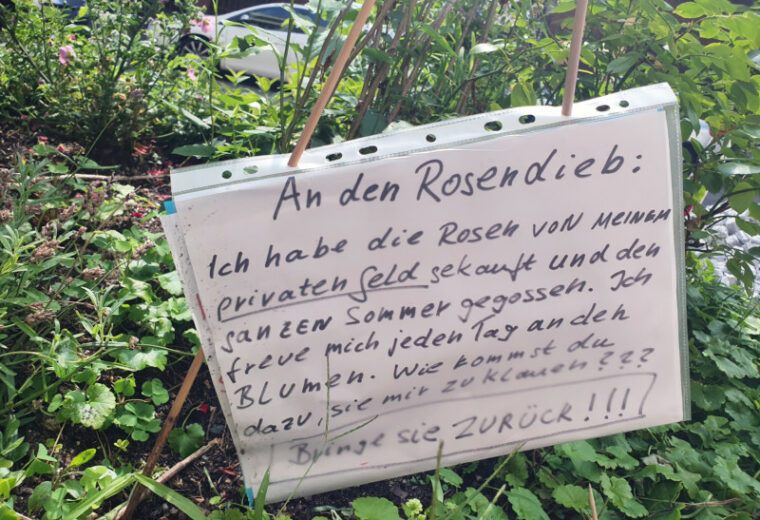 An den Rosendieb:
Ich habe die Rosen von meinem
privaten Geld gekauft und den
ganzen Sommer gegossen. Ich
freue mich jeden Tag an den
Blumen. Wie kommst du
dazu, sie mir zu klauen???
Bringe sie ZURÜCK!!!